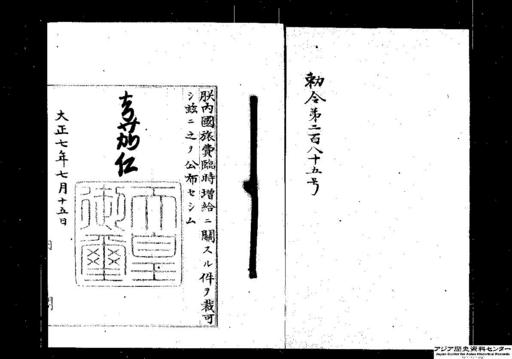 勅令第二百八十五号
朕内國旅費臨時増給ニ關スル件ヲ裁可
シ茲ニ之ヲ公布セシム
嘉仁
天皇
御璽
大正七年七月十五日
内閣
アジア歴史資料センター
Japan Center for Asian Historical Records